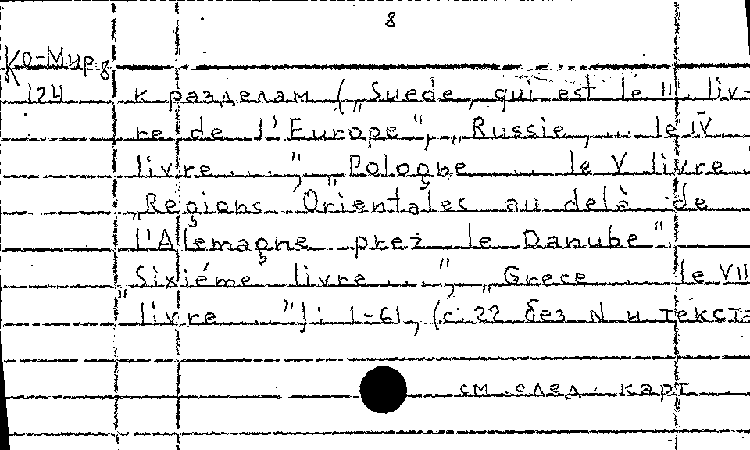 8
Ко-Мир 8
124
к разделам („Suede, qui est le II liv-
re de l'Europe", „Russie, ... le IV
livre ...", „Pologne ... le V livre ...
„Regions Orientales au delà de
l'Allemagne prez le Danube"
Sixiéme livre ...", „Grece ... le VII
livre ..."): 1-61, (с. 22 без N и текста
см. след. карт.